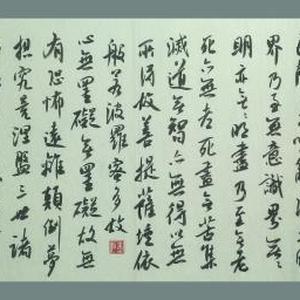 界乃至無意識界無無
明亦無無明盡乃至無老
死亦無老死盡無苦集
滅道無智亦無得以無
所得故菩提薩埵依
般若波羅密多故
心無罣礙無罣礙故無
有恐怖遠離顛倒夢
想究竟涅盤三世諸